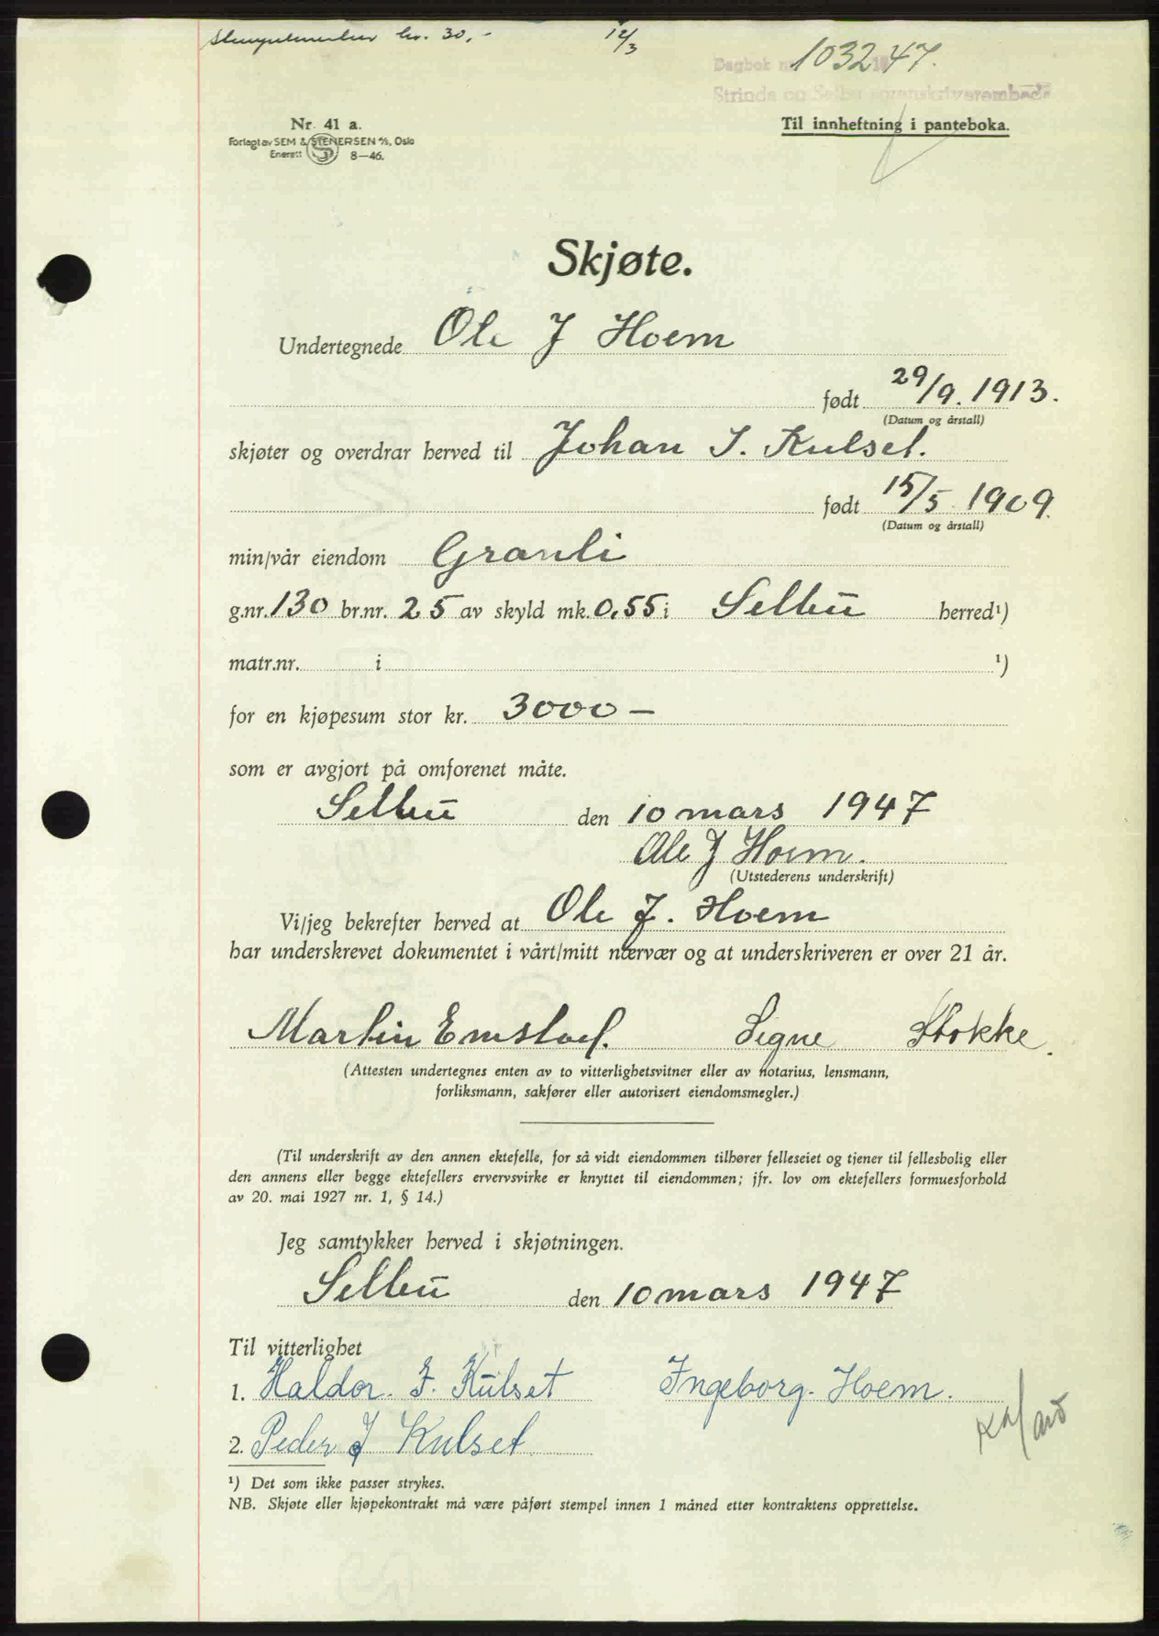 Stempelmerker kr. 30,- 12/3
Dagbok nr. 1032 1947.
Strinda og Selbu sorenskriverembede
Nr. 41 a.
Til innheftning i panteboka.
Forlagt av SEM & STENERSEN A/S, Oslo
Enerett 8—46.
Skjøte.
Undertegnede Ole J Hoem
født 29/9. 1913.
(Datum og årstall)
skjøter og overdrar herved til Johan I. Kulset.
født 15/5 1909.
(Datum og årstall)
min/vår eiendom Granli
g.nr. 130 br.nr. 25 av skyld mk. 0,55 i Selbu herred¹)
matr.nr. i ¹)
for en kjøpesum stor kr. 3000 —
som er avgjort på omforenet måte.
Selbu den 10 mars 1947
Ole J Hoem.
(Utstederens underskrift)
Vi/jeg bekrefter herved at Ole J. Hoem
har underskrevet dokumentet i vårt/mitt nærvær og at underskriveren er over 21 år.
Martin Emstad. Signe Stokke.
(Attesten undertegnes enten av to vitterlighetsvitner eller av notarius, lensmann,
forliksmann, sakfører eller autorisert eiendomsmegler.)
(Til underskrift av den annen ektefelle, for så vidt eiendommen tilhører felleseiet og tjener til fellesbolig eller
den annens eller begge ektefellers ervervsvirke er knyttet til eiendommen; jfr. lov om ektefellers formuesforhold
av 20. mai 1927 nr. 1, § 14.)
Jeg samtykker herved i skjøtningen.
Selbu den 10 mars 1947
Til vitterlighet
1. Haldor. F. Kulset Ingeborg. Hoem.
2. Peder J Kulset
¹) Det som ikke passer strykes.
NB. Skjøte eller kjøpekontrakt må være påført stempel innen 1 måned etter kontraktens opprettelse.